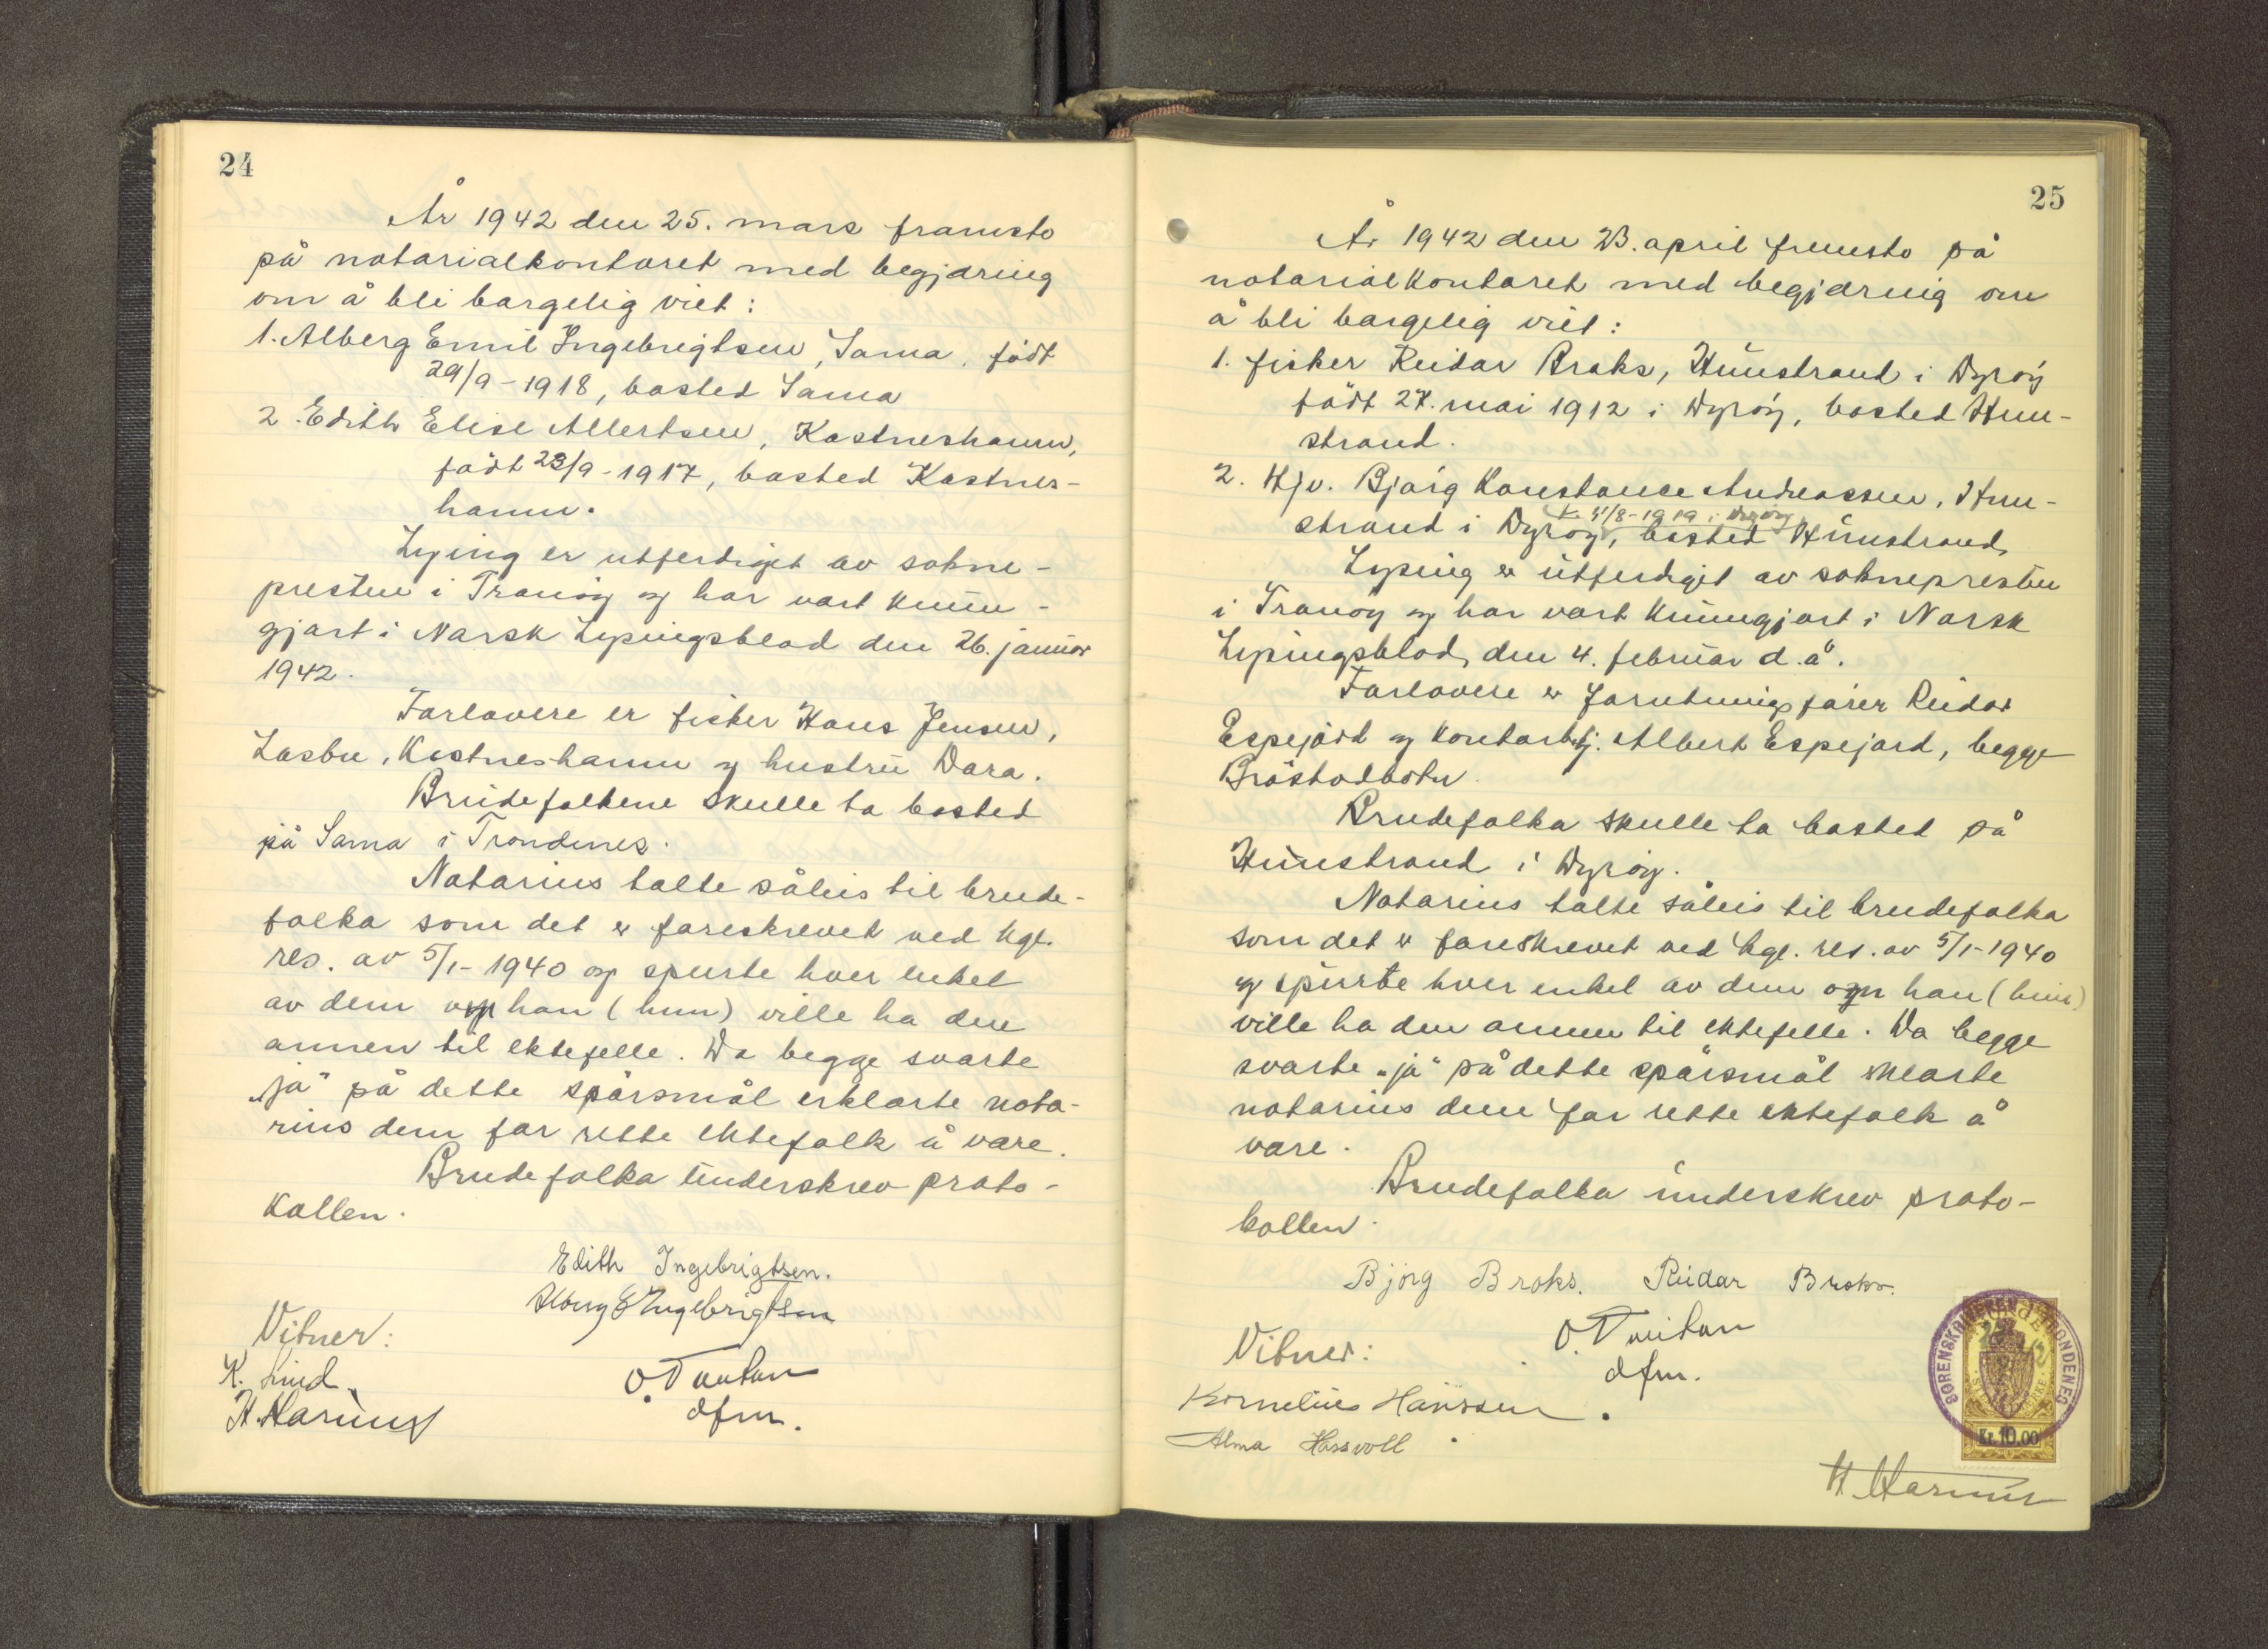 24
År 1942 den 25. mars framsto
på notarialkontoret med begjæring
om å bli borgelig viet:
1. Alberg Emil Ingebrigtsen, Sama, født
29/9-1918, bosted Sama
2. Edith Elise Albertsen, Kastneshamn,
født 23/9-1917, bosted Kastnes-
hamn.
Lysing er utferdiget av sokne-
presten i Tranøy og har vært kunn-
gjort i Norsk Lysingsblad den 26. januar
1942.
Forlovere er fisker Hans Jensen,
Kastneshamn og hustru Dora.
Brudefolkene skulle ta bosted
på Sama i Trondenes.
Notarius talte såleis til brude-
folka som det er foreskrevet ved kgl.
res. av 5/1-1940 og spurte hver enkel
av dem om han (hun) ville ha den
annen til ektefelle. Da begge svarte
„ja" på dette spørsmål erklærte nota-
rius dem for rette ektefolk å være.
Brudefolka underskrev proto-
kollen.
Edith Ingebrigtsen.
Alberg E Ingebrigtsen
Vitner:
K. Lind
dfm.
25
År 1942 den 23. april fremsto på
notarialkontoret med begjæring om
å bli borgelig viet:
1. fisker Reidar Broks, Hunstrand i Dyrøy
født 27. mai 1912 i Dyrøy, bosted Hun-
strand.
2. Hjv. Bjørg Konstance Andreassen, Hun-
strand i Dyrøy, bosted Hunstrand,
Lysing er utferdiget av soknepresten
i Tranøy og har vært kunngjort i Norsk
Lysingsblad, den 4. februar d.å.
Forlovere er forretningsfører Reidar
Espejord og Albert Espejord, begge
Brøstadbotn.
Brudefolka skulle ta bosted på
Hunstrand i Dyrøy.
Notarius talte såleis til brudefolka
som det er foreskrevet ved kgl. res. av 5/1-1940
og spurte hver enkel av dem om han (hun)
ville ha den annen til ektefelle. Da begge
svarte „ja" på dette spørsmål erklærte
notarius dem for rette ektefolk å
være.
Brudefolka underskrev proto-
kollen.
Bjørg Broks. Reidar Broks.
Vitner:
dfm.
Kornelius Hanssen.
Alma Hessvoll
SORENSKRIVEREN I TRONDENES
Kr. 10.00